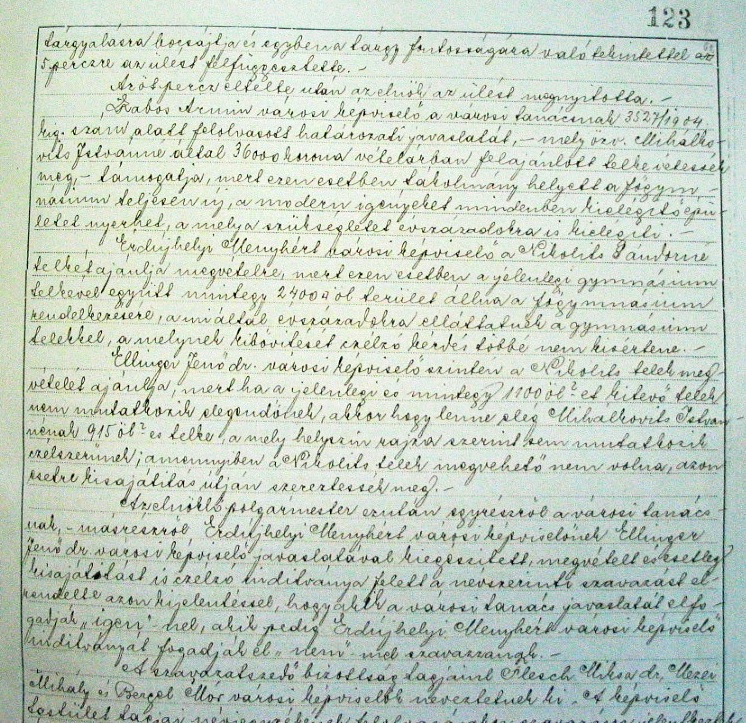 123
tárgyalásra bocsájtja és egyben a tárgy fontosságára való tekintettel az
5 perczre az ülést felfüggesztette. -
Az öt percz eltelte után az elnök az ülést megnyitotta. -
Szabos Ármin városi képviselő a városi tanácsnak 3527/1904
kig. szám alatt felolvasott határozati javaslatát, - mely özv. Mihalko-
vits Istvánné által 36000 korona vételárban felajánlott telke vétessék
meg, - támogatja, mert ezen esetben takolmány helyett a főgym-
násium teljesen új, a modern igényeket mindenben kielégítő épü-
letet nyerhet, a melya szükségletet évszázadokra is kielégíti. -
Erdujhelyi Menyhért városi képviselő a Nikolits Sándorné
telkét ajánlja megvételre, mert ezen esetben a jelenlegi gymnásium
telkével együtt mintegy 2400 □öl terület állna a főgymnasium
rendelkezésére, a mi által évszázadokra elláttatnék a gymnásium
telekkel, a melynek kibővítését czélzó kérdés többé nem kisértene. -
Ellinger Jenő dr. városi képviselő szintén a Nikolits telek meg-
vételét ajánlja, mert ha a jelenlegi és mintegy 1100 öl² et kitevő telek
nem mutatkozik elegendőnek, akkor hogy lenne elég Mihalkovits István-
nénak 915 öl² es telke, a mely helyszin rajza szerint sem mutatkozik
czélszerünek; amennyiben a Nikolits telek megvehető nem volna, azon
esetre kisajátitás utján szereztessék meg. -
Az elnöklő polgármester ezután egyrészről a városi tanács-
nak, - másrészről Erdujhelyi Menyhért városi képviselőnek Ellinger
Jenő dr. városi képviselő javaslatával kiegészitett, megvételt és esetleg
kisajátitást is czélzó inditványa felett a névszerinti szavazást el-
rendelte azon kijelentéssel, hogy akik a városi tanács javaslatát elfo-
gadják "igen"-nel, akik pedig Erdujhelyi Menyhért városi képviselő
inditványát fogadják el "nem"-mel szavazzanak. -
A szavazatszedő bizottság tagjaiul Flesch Miksa dr, Mezei
Mihály és Berger Mór városi képviselők neveztetnek ki. A képviselő
testület tagjai névjegyzékének